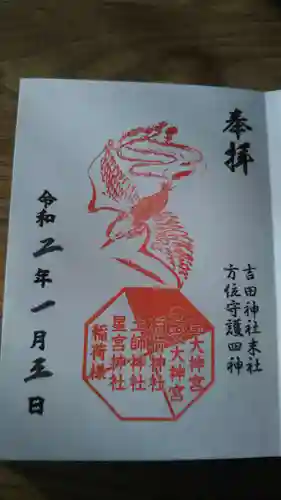 奉拝
吉田神社末社
方位守護四神
大神宮
大神宮
神社
土師神社
星宮神社
稲荷様
令和二年一月三日